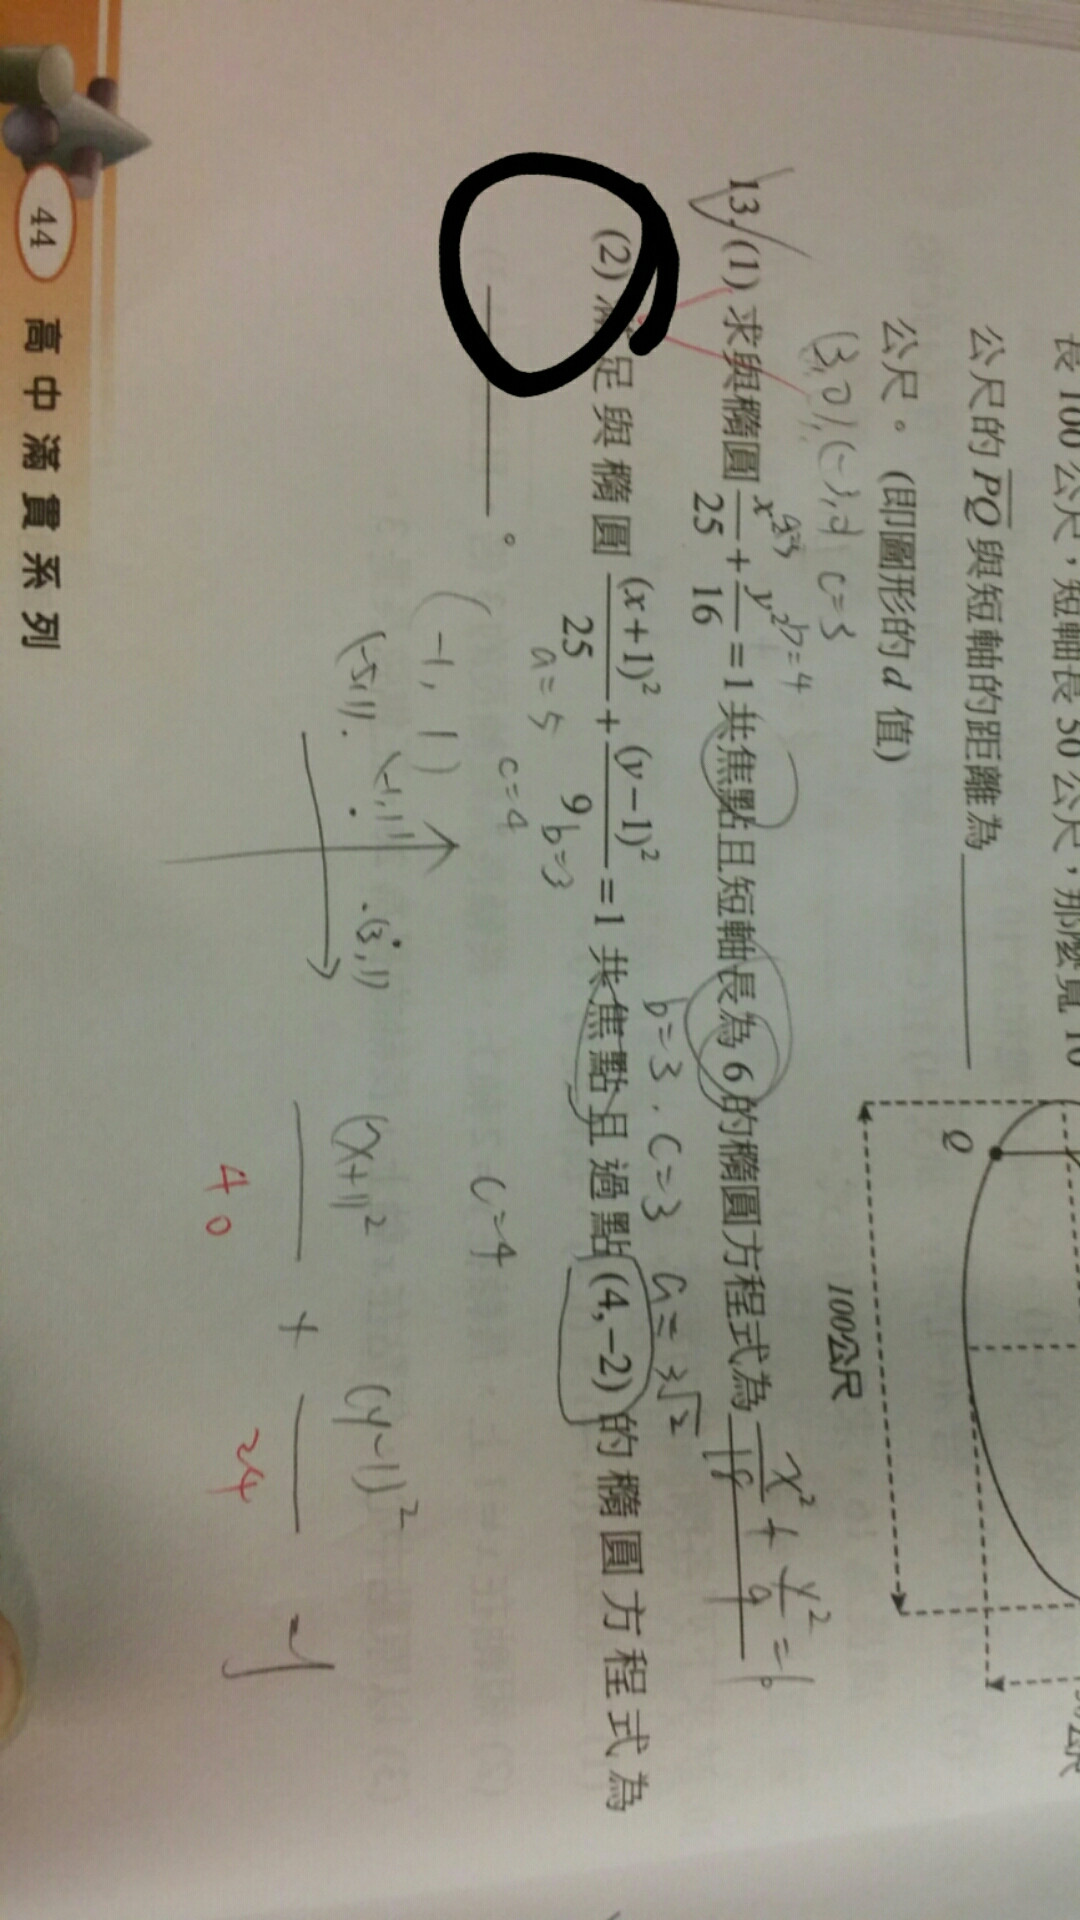 長 100 公尺，短軸長 50 公尺，那麼寬 10
公尺的 PQ 與短軸的距離為
公尺。(即圖形的 d 值)
Q
100公尺
公尺
(3,0), (-3,0) c=3
a=5 b=4
13. (1) 求與橢圓 x²/25 + y²/16 = 1 共焦點且短軸長為 6 的橢圓方程式為 x²/18 + y²/9 = 1。
b=3, c=3 a=3√2
(2) 滿足與橢圓 (x+1)²/25 + (y-1)²/9 = 1 共焦點且過點 (4,-2) 的橢圓方程式為
a=5 b=3
。
c=4 c=4
(-1, 1)
(-5,1) (-1,1) (3,1)
(x+1)²/40 + (y-1)²/24 = 1
44 高中滿貫系列